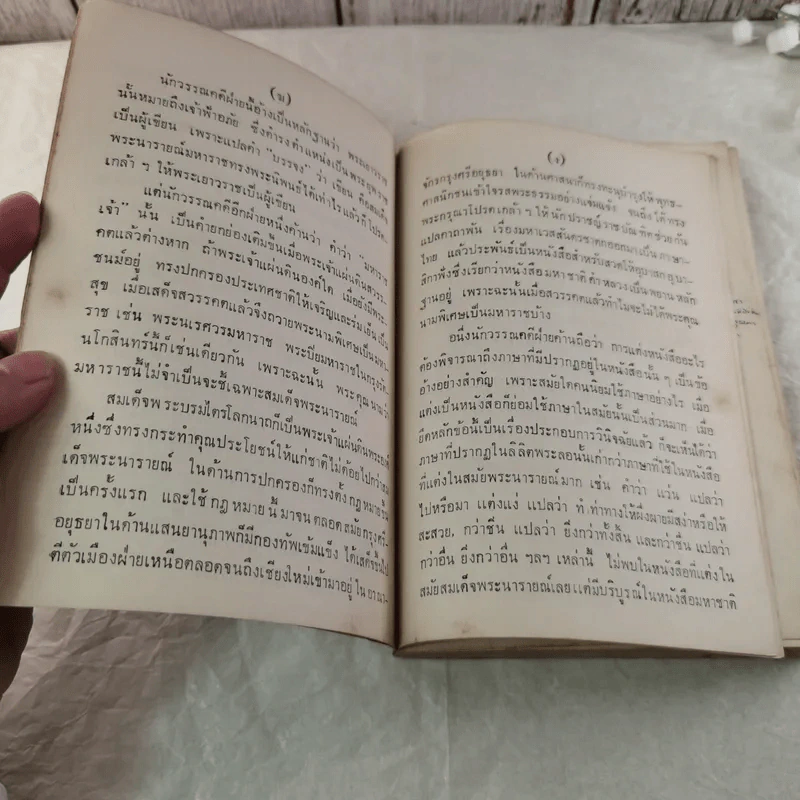 (ฆ)
นักวรรณคดีฝ่ายนี้อ้างเป็นหลักฐานว่า พระเยาวราช
นั้นหมายถึงเจ้าฟ้าอภัย ซึ่งดำรงตำแหน่งเป็นพระยุพราช
เป็นผู้เขียน เพราะแปลคำ "บรรจง" ว่า เขียน คือสมเด็จ
พระนารายณ์มหาราชทรงพระนิพนธ์ได้เท่าไรแล้วก็โปรด-
เกล้า ๆ ให้พระเยาวราชเป็นผู้เขียน
แต่นักวรรณคดีอีกฝ่ายหนึ่งค้านว่า คำว่า "มหาราช
เจ้า" นั้น เป็นคำยกย่องเติมขึ้นเมื่อพระเจ้าแผ่นดินสวรร-
คตแล้วต่างหาก ถ้าพระเจ้าแผ่นดินองค์ใด เมื่อยังมีพระ-
ชนม์อยู่ ทรงปกครองประเทศชาติให้เจริญและร่มเย็นเป็น
สุข เมื่อเสด็จสวรรคตแล้วจึงถวายพระนามพิเศษเป็นมหา-
ราช เช่น พระนเรศวรมหาราช พระปิยมหาราชในกรุงรัต-
นโกสินทร์นี้ก็เช่นเดียวกัน เพราะฉะนั้น พระคุณนามว่า
มหาราชนี้ไม่จำเป็นจะชี้เฉพาะสมเด็จพระนารายณ์
สมเด็จพระบรมไตรโลกนาถก็เป็นพระเจ้าแผ่นดินพระองค์
หนึ่งซึ่งทรงกระทำคุณประโยชน์ให้แก่ชาติไม่ด้อยไปกว่าสม
เด็จพระนารายณ์ ในด้านการปกครองก็ทรงตั้งกฎหมายขึ้น
เป็นครั้งแรก และใช้กฎหมายนี้มาจนตลอดสมัยกรุงศรี-
อยุธยาในด้านแสนยานุภาพก็มีกองทัพเข้มแข็ง ได้เสด็จขึ้นไป
ตีตัวเมืองฝ่ายเหนือตลอดจนถึงเชียงใหม่เข้ามาอยู่ในอาณา-
(ง)
จักรกรุงศรีอยุธยา ในด้านศาสนาก็ทรงทะนุบำรุงให้พุทธ-
ศาสนิกชนเข้าใจรสพระธรรมอย่างแจ่มแจ้ง จนถึงได้ทรง
พระกรุณาโปรดเกล้า ๆ ให้นักปราชญ์ราชบัณฑิตช่วยกัน
แปลคาถาพัน เรื่องมหาเวสสันดรชาดกออกมาเป็นภาษา-
ไทย แล้วประพันธ์เป็นหนังสือสำหรับสวดให้อุบาสกอุบา-
สิกาฟังซึ่งเรียกว่าหนังสือมหาชาติคำหลวงเป็นพยานหลัก
ฐานอยู่ เพราะฉะนั้นเมื่อสวรรคตแล้วทำไมจะไม่ได้พระคุณ
นามพิเศษเป็นมหาราชบ้าง
อนึ่งนักวรรณคดีฝ่ายค้านถือว่า การแต่งหนังสืออะไร
ต้องพิจารณาถึงภาษาที่มีปรากฏอยู่ในหนังสือนั้น ๆ เป็นข้อ
อ้างอย่างสำคัญ เพราะสมัยใดคนนิยมใช้ภาษาอย่างไร เมื่อ
แต่งเป็นหนังสือก็ย่อมใช้ภาษาในสมัยนั้นเป็นส่วนมาก เมื่อ
ยึดหลักข้อนี้เป็นเรื่องประกอบการวินิจฉัยแล้ว ก็จะเห็นได้ว่า
ภาษาที่ปรากฏในลิลิตพระลอนั้นเก่ากว่าภาษาที่ใช้ในหนังสือ
ที่แต่งในสมัยพระนารายณ์มาก เช่น คำว่า แว่น แปลว่า
ไปหรือมา แต่งแง่ แปลว่า ทำท่าทางให้ผึ่งผายมีสง่าหรือให้
สะสวย, กว่าชื่น แปลว่า ยิ่งกว่าทั้งสิ้น และกว่าชื่น แปลว่า
กว่าอื่น ยิ่งกว่าอื่น ฯลฯ เหล่านี้ ไม่พบในหนังสือที่แต่งใน
สมัยสมเด็จพระนารายณ์เลยแต่มีบริบูรณ์ในหนังสือมหาชาติ